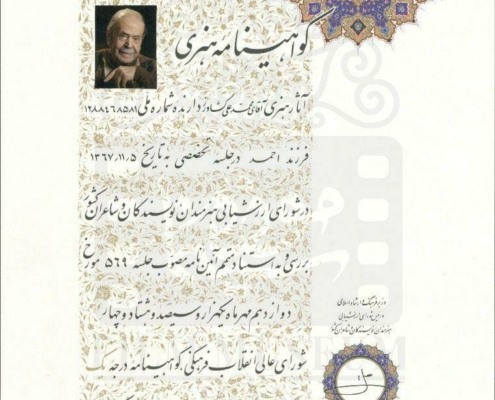 گواهینامه هنری
آثار هنری آقای محمدعلی کشاورز دارنده شماره ملی ۱۲۸۸۴۶۸۵۸۱
فرزند احمد در جلسه تخصصی به تاریخ ۱۳۶۷,۱۱,۵
در شورای ارزشیابی هنرمندان نویسندگان و شاعران کشور
بررسی و به استناد متمم آئین نامه مصوب جلسه ۵۶۹ مورخ
دوازدهم مهرماه یکهزار و سیصد و هشتاد و چهار
شورای عالی انقلاب فرهنگی گواهینامه درجه یک
وزیر فرهنگ و ارشاد اسلامی
و رئیس شورای ارزشیابی
هنرمندان نویسندگان و شاعران کشور